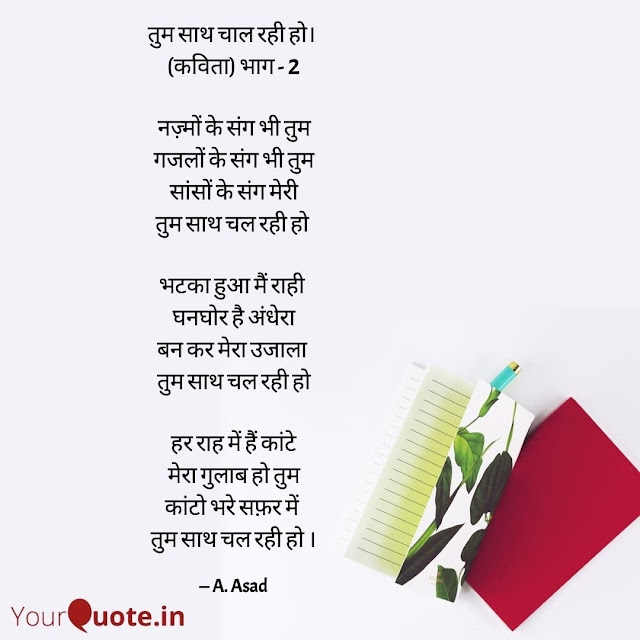 तुम साथ चाल रही हो।
(कविता) भाग - 2
नज़्मों के संग भी तुम
गजलों के संग भी तुम
सांसों के संग मेरी
तुम साथ चल रही हो
भटका हुआ मैं राही
घनघोर है अंधेरा
बन कर मेरा उजाला
तुम साथ चल रही हो
हर राह में हैं कांटे
मेरा गुलाब हो तुम
कांटो भरे सफ़र में
तुम साथ चल रही हो ।
– A. Asad
YourQuote.in